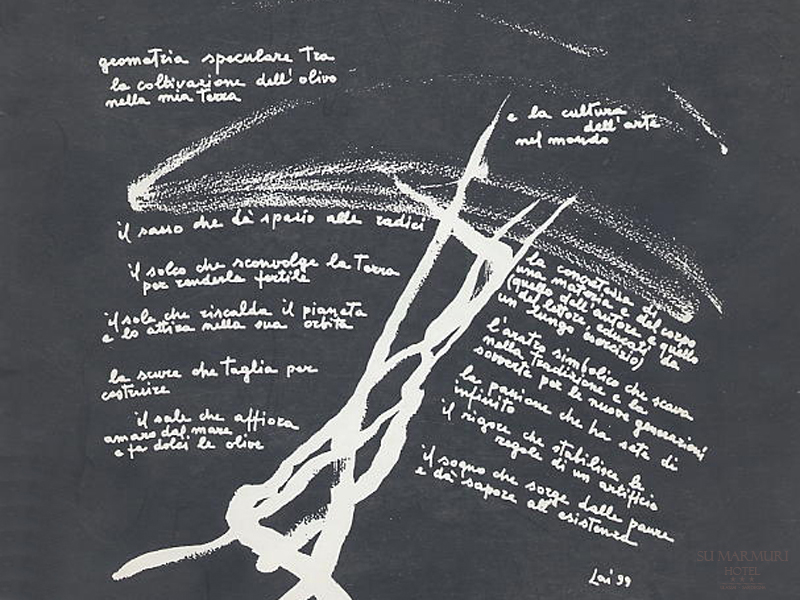 geometria speculare tra
la coltivazione dell'olivo
nella mia terra
e la cultura
dell'arte
nel mondo
il sasso che dà spazio alle radici
il solco che sconvolge la terra
per renderla fertile
il sole che riscalda il pianeta
e lo attira nella sua orbita
la scure che taglia per
costruire
il sale che affiora
amaro dal mare
e fa dolci le olive
la concretezza di
una materia e del corpo
(quello dell'autore e quello
del lettore, educati da
un lungo esercizio)
l'aratro simbolico che scava
nella tradizione e la
sovverte per le nuove generazioni
la passione che ha sete di
infinito
il rigore che stabilisce le
regole di un artificio
il sogno che sorge dalle paure
e dà sapore all'esistenza
Lai 99
SU MARMURI
HOTEL